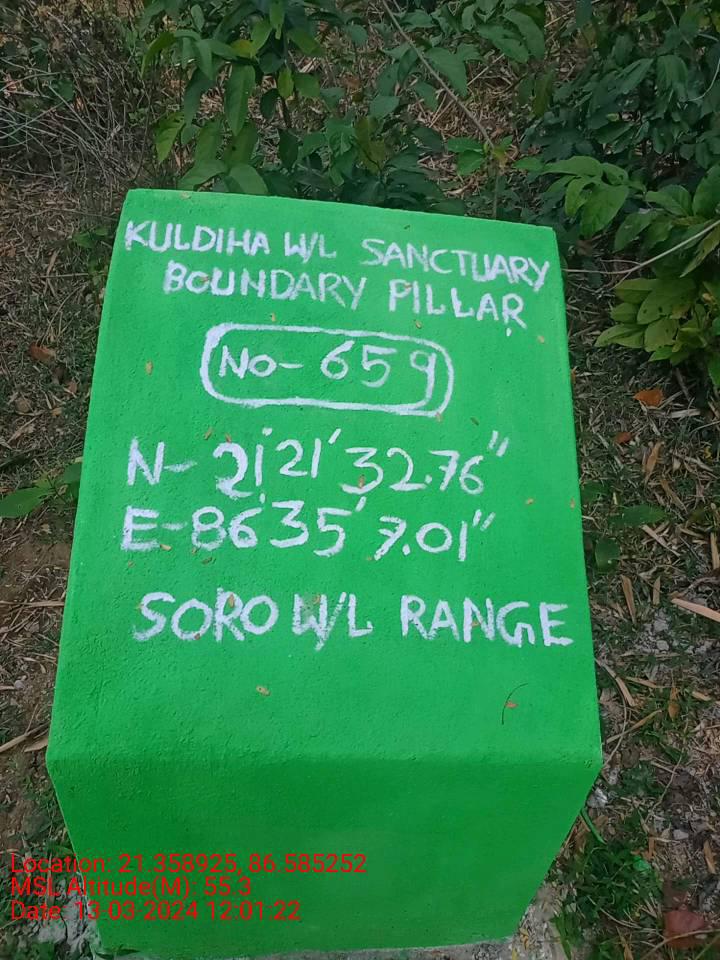 KULDIHA W/L SANCTUARY
BOUNDARY PILLAR
No- 659
N- 21°21'32.76"
E-86°35'7.01"
SORO W/L RANGE
Location: 21.358925, 86.585252
MSL Altitude(M): 55.3
Date: 13-03-2024 12:01:22